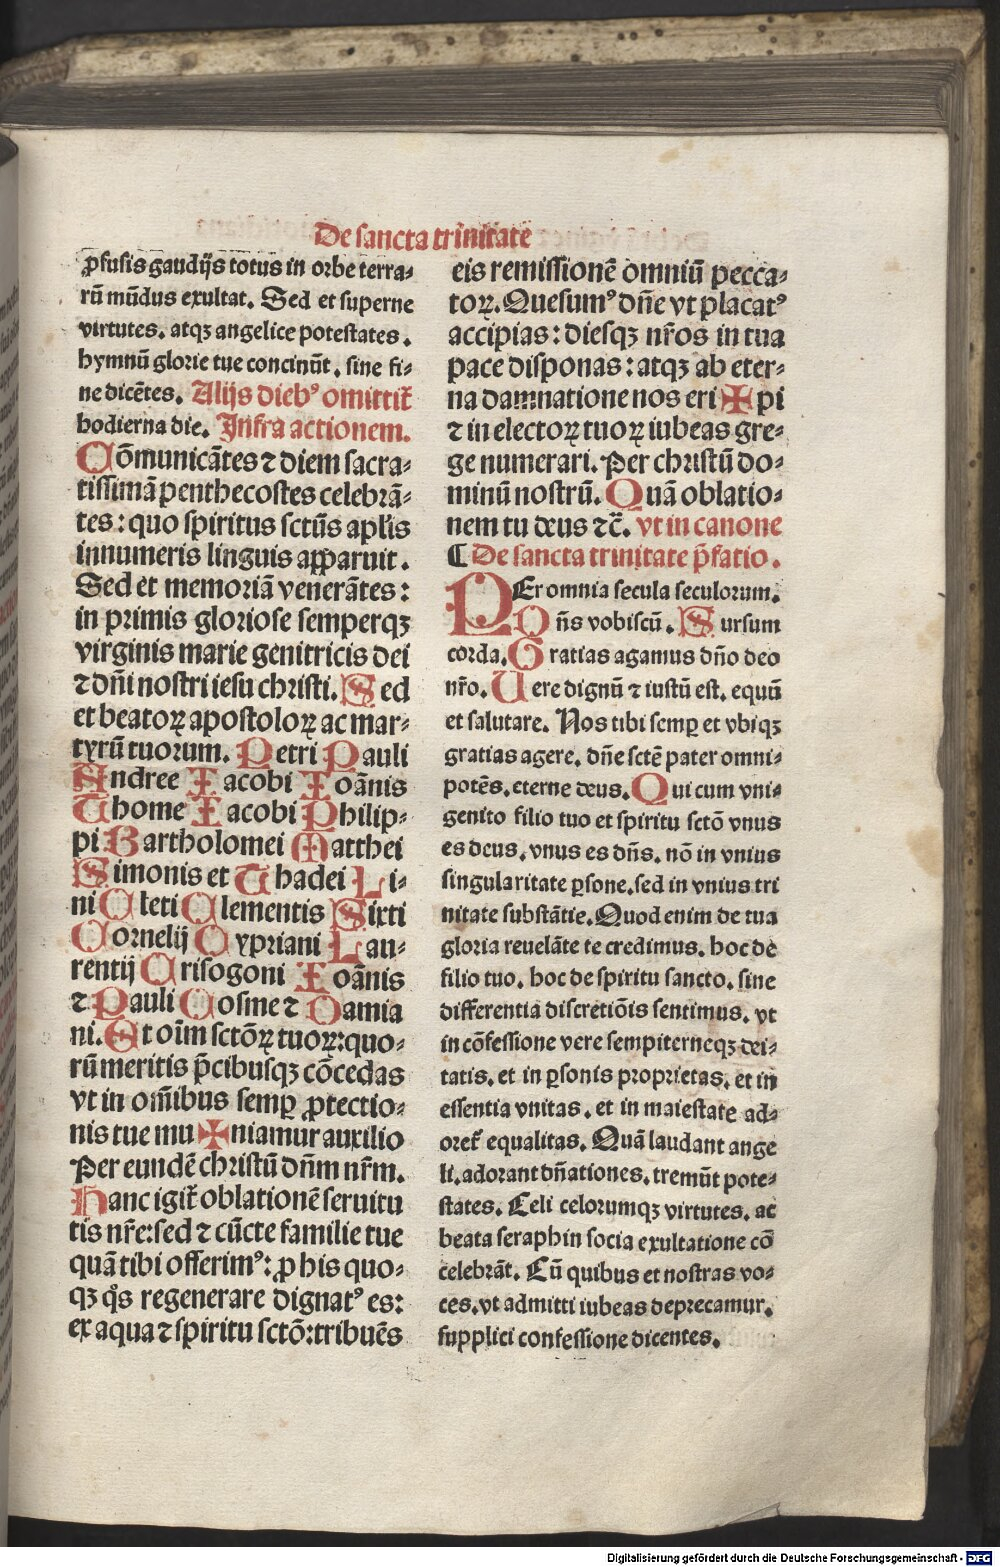 De sancta trinitate
ꝓfusis gaudijs totus in orbe terra⸗
rū mūdus exultat. Sed et superne
virtutes. atqꝫ angelice potestates.
hymnū glorie tue concinūt. sine fi⸗
ne dicētes. Alijs diebꝰ omittit᷑
hodierna die. Infra actionem.
Cōmunicātes ⁊ diem sacra⸗
tissimā penthecostes celebrā⸗
tes: quo spiritus sctūs aplis
innumeris linguis apparuit.
Sed et memoriā venerātes:
in primis gloriose semperqꝫ
virginis marie genitricis dei
⁊ dn̄i nostri iesu christi. Sed
et beatoꝝ apostoloꝝ ac mar⸗
tyrū tuorum. Petri Pauli
Andree Iacobi Ioānis
Thome Iacobi Philip⸗
pi Bartholomei Matthei
Simonis et Thadei Li⸗
ni Cleti Clementis Sixti
Cornelij Cypriani Lau⸗
rentij Crisogoni Ioānis
⁊ Pauli Cosme ⁊ Damia
ni. Et oīm sctōꝝ tuoꝝ: quo⸗
rū meritis p̄cibusqꝫ cōcedas
vt in om̄ibus semꝑ ꝓtectio⸗
nis tue mu ✠ niamur auxilio
Per eundē christū dn̄m nr̄m.
Hanc igit᷑ oblationē seruitu
tis nr̄e: sed ⁊ cūcte familie tue
quā tibi offerimꝰ: ꝓ his quo⸗
qꝫ qͦs regenerare dignatꝰ es:
ex aqua ⁊ spiritu sctō: tribuēs
eis remissionē omniū pecca⸗
toꝝ. Quesumꝰ dn̄e vt placatꝰ
accipias: diesqꝫ nr̄os in tua
pace disponas: atqꝫ ab eter⸗
na damnatione nos eri ✠ pi
⁊ in electoꝝ tuoꝝ iubeas gre⸗
ge numerari. Per christū do⸗
minū nostrū. Quā oblatio⸗
nem tu deus ⁊c̄. vt in canone
⸿ De sancta trinitate p̄fatio.
PEr omnia secula seculorum.
Dn̄s vobiscū. Sursum
corda. Gratias agamus dn̄o deo
nr̄o. Uere dignū ⁊ iustū est. equū
et salutare. Nos tibi semꝑ et vbiqꝫ
gratias agere. dn̄e sctē pater omni⸗
potēs. eterne deus. Qui cum vni⸗
genito filio tuo et spiritu sctō vnus
es deus. vnus es dn̄s. nō in vnius
singularitate ꝑsone. sed in vnius tri
nitate substātie. Quod enim de tua
gloria reuelāte te credimus. hoc de
filio tuo. hoc de spiritu sancto. sine
differentia discretiōis sentimus. vt
in cōfessione vere sempiterneqꝫ dei⸗
tatis. et in ꝑsonis proprietas. et in
essentia vnitas. et in maiestate ad⸗
oret᷑ equalitas. Quā laudant ange
li. adorant dn̄ationes. tremūt pote⸗
states. Celi celorumqꝫ virtutes. ac
beata seraphin socia exultatione cō
celebrāt. Cū quibus et nostras vo⸗
ces. vt admitti iubeas deprecamur.
supplici confessione dicentes.
Digitalisierung gefördert durch die Deutsche Forschungsgemeinschaft - DFG